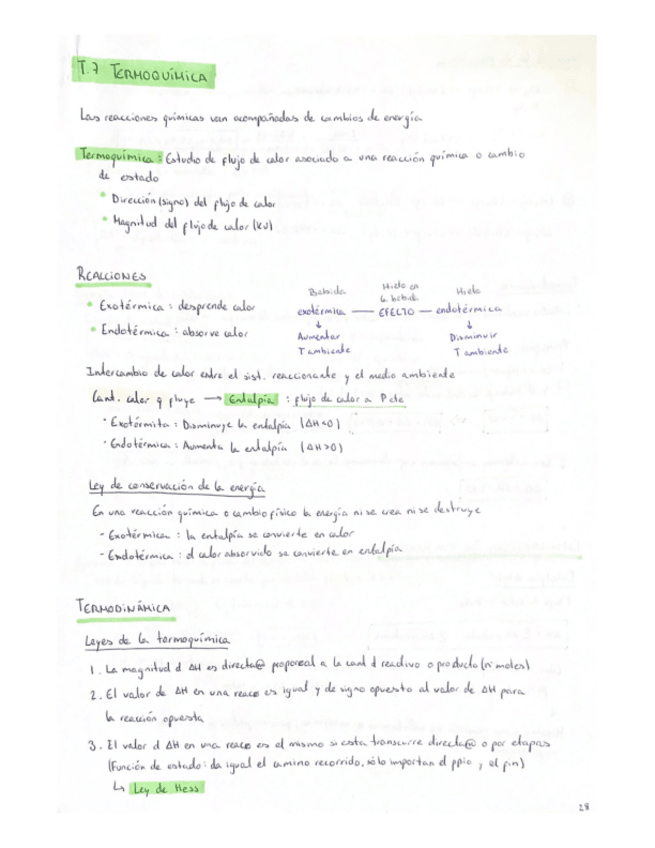 T.7 TERMOQUÍMICA
Las reacciones químicas van acompañadas de cambios de energía
Termoquímica: Estudio de flujo de calor asociado a una reacción química o cambio
de estado
• Dirección (signo) del flujo de calor
• Magnitud del flujo de calor (KJ)
REACCIONES
Bebida Hielo en la bebida Hielo
• Exotérmica: desprende calor exotérmica — EFECTO — endotérmica
• Endotérmica: absorve calor ↓ Aumentar T ambiente ↓ Disminuir T ambiente
Intercambio de calor entre el sist. reaccionante y el medio ambiente
Cant. calor q fluye → Entalpía : flujo de calor a P cte
· Exotérmita: Disminuye la entalpía (ΔH<0)
· Endotérmica: Aumenta la entalpía (ΔH>0)
Ley de conservación de la energía
En una reacción química o cambio físico la energía ni se crea ni se destruye
- Exotérmica: la entalpía se convierte en calor
- Endotérmica: el calor absorvido se convierte en entalpía
TERMODINÁMICA
Leyes de la termoquímica
1. La magnitud d ΔH es directa@ proporcal a la cant d reactivo o producto (nº moles)
2. El valor de ΔH en una reacc es igual y de signo opuesto al valor de ΔH para
la reacción opuesta
3. El valor d ΔH en una reacc es el mismo si esta transcurre directa@ o por etapas
(Función de estado: da igual el camino recorrido, sólo importan el ppio y el fin)
↳ Ley de Hess
28